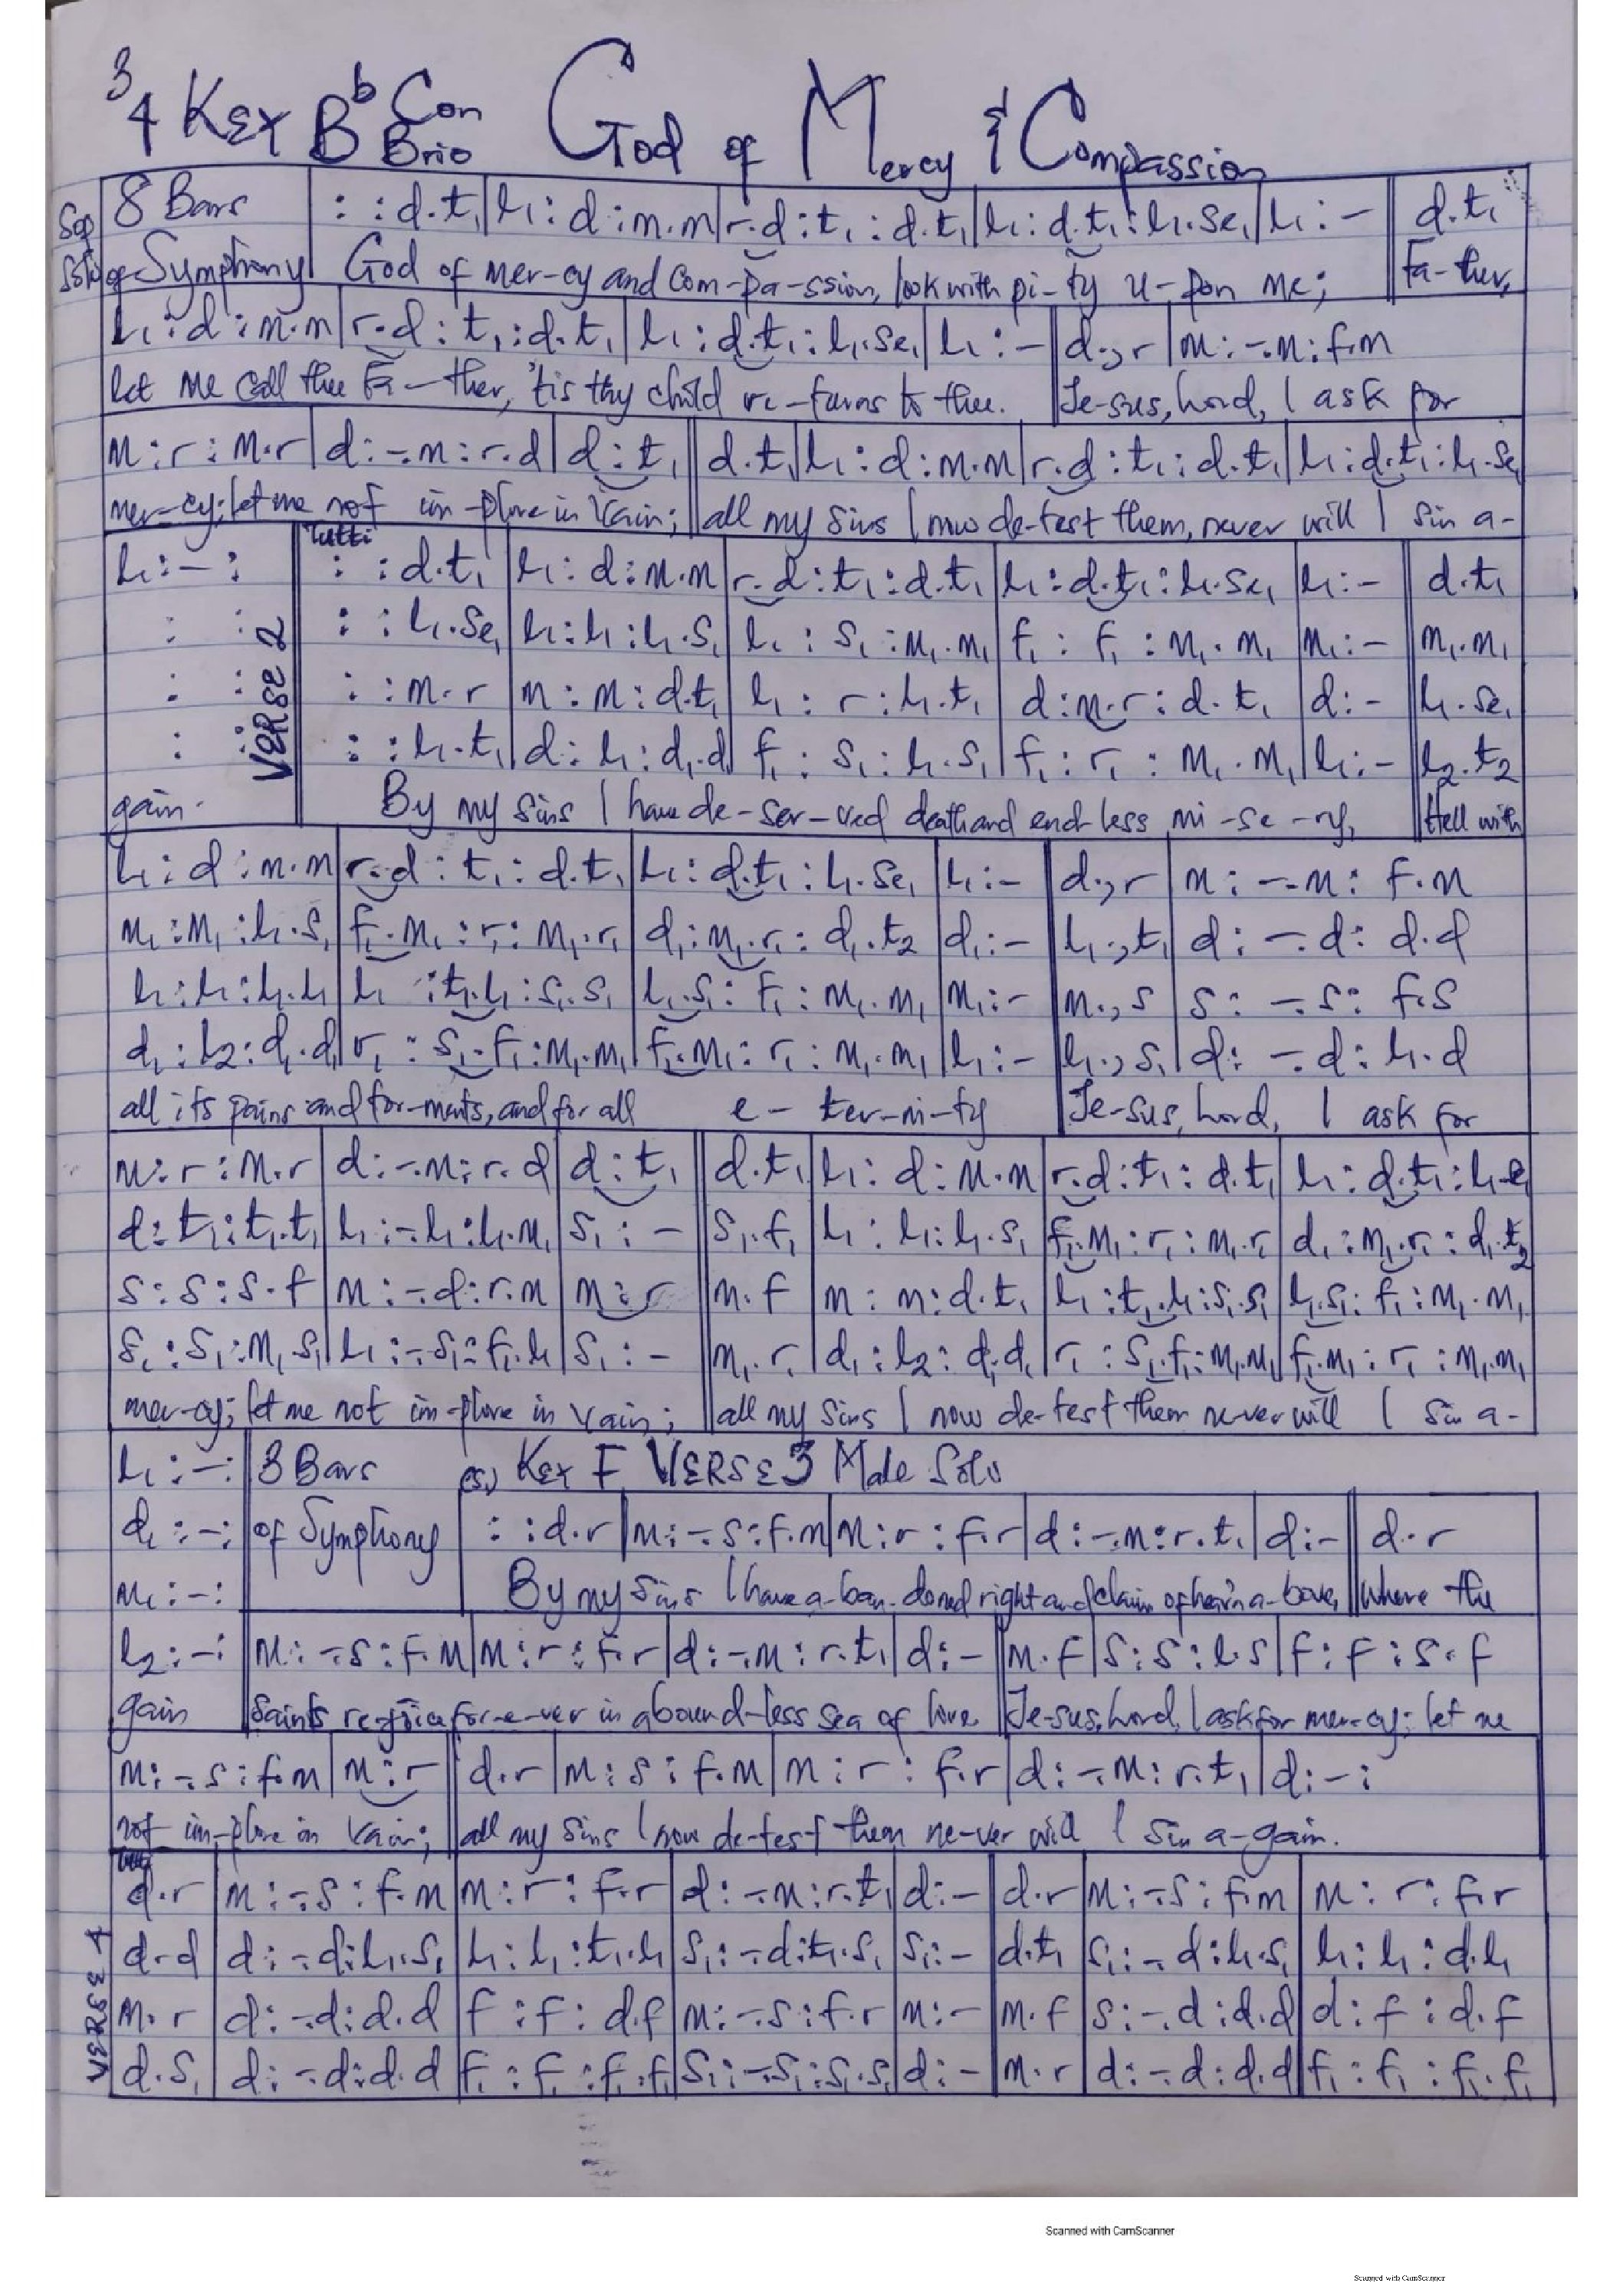 3/4 KEY Bb Con Brio God of Mercy & Compassion
Sop Solo 8 Bars of Symphony
: : d.t₁|l₁ : d : m.m|r.d : t₁ : d.t₁|l₁ : d.t₁ : l₁.se₁|l₁ : –||d.t₁
God of mer-cy and com-pa-ssion, look with pi-ty u-pon me; Fa-ther,
l₁ : d : m.m|r.d : t₁ : d.t₁|l₁ : d.t₁ : l₁.se₁|l₁ : –|d.,r|m : –.m : f.m
let me call thee Fa-ther, 'tis thy child re-turns to thee. Je-sus, Lord, I ask for
m : r : m.r|d : –.m : r.d|d : t₁||d.t₁|l₁ : d : m.m|r.d : t₁ : d.t₁|l₁ : d.t₁ : l₁.se₁
mer-cy; let me not im-plore in vain; all my sins I now de-test them, never will I sin a-
Tutti
VERSE 2
l₁ : – : : : d.t₁|l₁ : d : m.m|r.d : t₁ : d.t₁|l₁ : d.t₁ : l₁.se₁|l₁ : –||d.t₁
: : : : l₁.se₁|l₁ : l₁ : l₁.s₁|l₁ : s₁ : m₁.m₁|f₁ : f₁ : m₁.m₁|m₁ : –|m₁.m₁
: : : : m.r|m : m : d.t₁|l₁ : r : l₁.t₁|d : m.r : d.t₁|d : –|l₁.se₁
: : : : l₁.t₁|d : l₁ : d₁.d|f₁ : s₁ : l₁.s₁|f₁ : r₁ : m₁.m₁|l₁ : –|l₂.t₂
gain. By my sins I have de-ser-ved death and end-less mi-se-ry, Hell with
l₁ : d : m.m|r.d : t₁ : d.t₁|l₁ : d.t₁ : l₁.se₁|l₁ : –|d.,r|m : –.m : f.m
m₁ : m₁ : l₁.s₁|f₁.m₁ : r₁ : m₁.r₁|d₁ : m₁.r₁ : d₁.t₂|d₁ : –|l₁.,t₁|d : –.d : d.d
l₁ : l₁ : l₁.l₁|l₁ : t₁.l₁ : s₁.s₁|l₁.s₁ : f₁ : m₁.m₁|m₁ : –|m.,s|s : –.s : f.s
d₁ : l₂ : d₁.d₁|r₁ : s₁.f₁ : m₁.m₁|f₁.m₁ : r₁ : m₁.m₁|l₁ : –|l₁.,s₁|d : –.d : l₁.d
all its pains and tor-ments, and for all e-ter-ni-ty Je-sus, Lord, I ask for
m : r : m.r|d : –.m : r.d|d : t₁||d.t₁|l₁ : d : m.m|r.d : t₁ : d.t₁|l₁ : d.t₁ : l₁.se₁
d : t₁ : t₁.t₁|l₁ : –.l₁ : l₁.m₁|s₁ : –|s₁.f₁|l₁ : l₁ : l₁.s₁|f₁.m₁ : r₁ : m₁.r₁|d₁ : m₁.r₁ : d₁.t₂
s : s : s.f|m : –.d : r.m|m : r|m.f|m : m : d.t₁|l₁ : t₁.l₁ : s₁.s₁|l₁.s₁ : f₁ : m₁.m₁
s₁ : s₁ : m₁.s₁|l₁ : –.s₁ : f₁.l₁|s₁ : –|m₁.r₁|d₁ : l₂ : d₁.d₁|r₁ : s₁.f₁ : m₁.m₁|f₁.m₁ : r₁ : m₁.m₁
mer-cy; let me not im-plore in vain; all my sins I now de-test them never will I sin a-
l₁ : – : 8 Bars (s.) KEY F VERSE 3 Male Solo
d₁ : – : of Symphony : : d.r|m : –.s : f.m|m : r : f.r|d : –.m : r.t₁|d : –||d.r
m₁ : – : By my sins I have a-ban-doned right and claim of heav'n a-bove, where the
l₂ : – : m : –.s : f.m|m : r : f.r|d : –.m : r.t₁|d : –|m.f|s : s : l.s|f : f : s.f
gain saints rejoice for-e-ver in a bound-less sea of love Je-sus, Lord, I ask for mer-cy; let me
m : –.s : f.m|m : r||d.r|m : s : f.m|m : r : f.r|d : –.m : r.t₁|d : – :
not im-plore in vain; all my sins I now de-test them ne-ver will I sin a-gain.
VERSE 4
d.r|m : –.s : f.m|m : r : f.r|d : –.m : r.t₁|d : –|d.r|m : –.s : f.m|m : r : f.r
d.d|d : –.d : l₁.s₁|l₁ : l₁ : t₁.l₁|s₁ : –.d : t₁.s₁|s₁ : –|d.t₁|s₁ : –.d : l₁.s₁|l₁ : l₁ : d.l₁
m.r|d : –.d : d.d|f : f : d.f|m : –.s : f.r|m : –|m.f|s : –.d : d.d|d : f : d.f
d.s₁|d : –.d : d.d|f₁ : f₁ : f₁.f₁|s₁ : –.s₁ : s₁.s₁|d : –|m.r|d : –.d : d.d|f₁ : f₁ : f₁.f₁
Scanned with CamScanner
Scanned with CamScanner